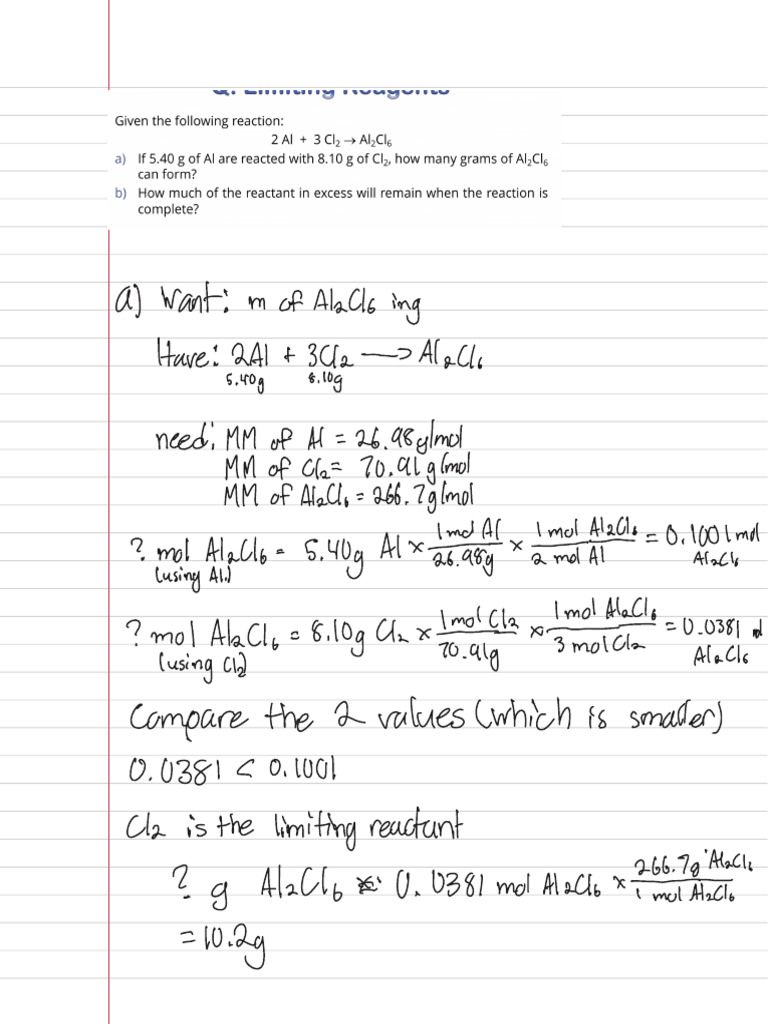 Q: Limiting Reagents
Given the following reaction:
2 Al + 3 Cl₂ → Al₂Cl₆
a) If 5.40 g of Al are reacted with 8.10 g of Cl₂, how many grams of Al₂Cl₆
can form?
b) How much of the reactant in excess will remain when the reaction is
complete?
a) Want: m of Al₂Cl₆ in g
Have: 2Al + 3Cl₂ → Al₂Cl₆
5.40g 8.10g
need: MM of Al = 26.98g/mol
MM of Cl₂ = 70.91g/mol
MM of Al₂Cl₆ = 266.7g/mol
? mol Al₂Cl₆ = 5.40g Al × 1 mol Al / 26.98g × 1 mol Al₂Cl₆ / 2 mol Al = 0.1001 mol Al₂Cl₆
(using Al)
? mol Al₂Cl₆ = 8.10g Cl₂ × 1 mol Cl₂ / 70.91g × 1 mol Al₂Cl₆ / 3 mol Cl₂ = 0.0381 Al₂Cl₆
(using Cl₂)
Compare the 2 values (which is smaller)
0.0381 < 0.1001
Cl₂ is the limiting reactant
? g Al₂Cl₆ = 0.0381 mol Al₂Cl₆ × 266.7g Al₂Cl₆ / 1 mol Al₂Cl₆
= 10.2g